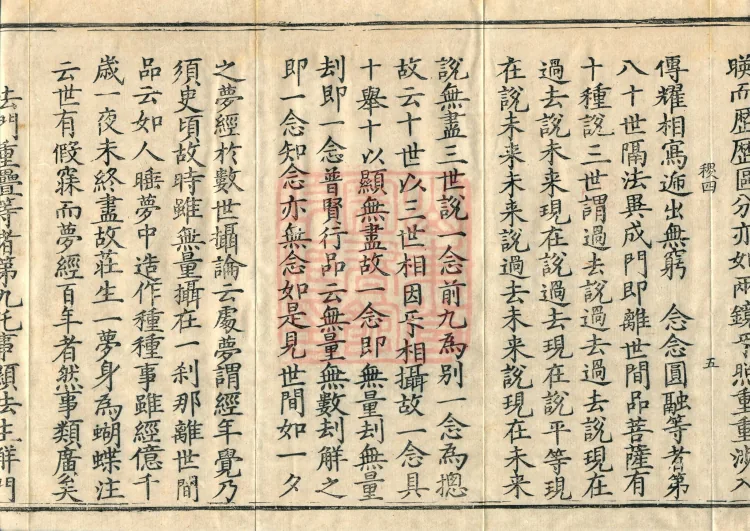 暎而歷歷區分亦如兩鏡互照重重涉入
稷四
五
傳耀相寫遞出無窮　念念圓融等者第
八十世隔法異成門即離世間品菩薩有
十種說三世謂過去說過去過去說現在
過去說未來現在說過去現在說平等現
在說未来未来說過去未来說現在未来
說無盡三世說一念前九為別一念為摠
故云十世以三世相因互相攝故一念具
十舉十以顯無盡故一念即無量刦無量
刦即一念普賢行品云無量無數刦解之
即一念知念亦無念如是見世間如一夕
之夢經於數世攝論云處夢謂經年覺乃
須臾頃故時雖無量攝在一刹那離世間
品云如人睡夢中造作種種事雖經億千
歳一夜未終盡故莊生一夢身為蝴蝶注
云世有假寐而夢經百年者然事類廣矣
法門重疊等者第九託事顯法生解門